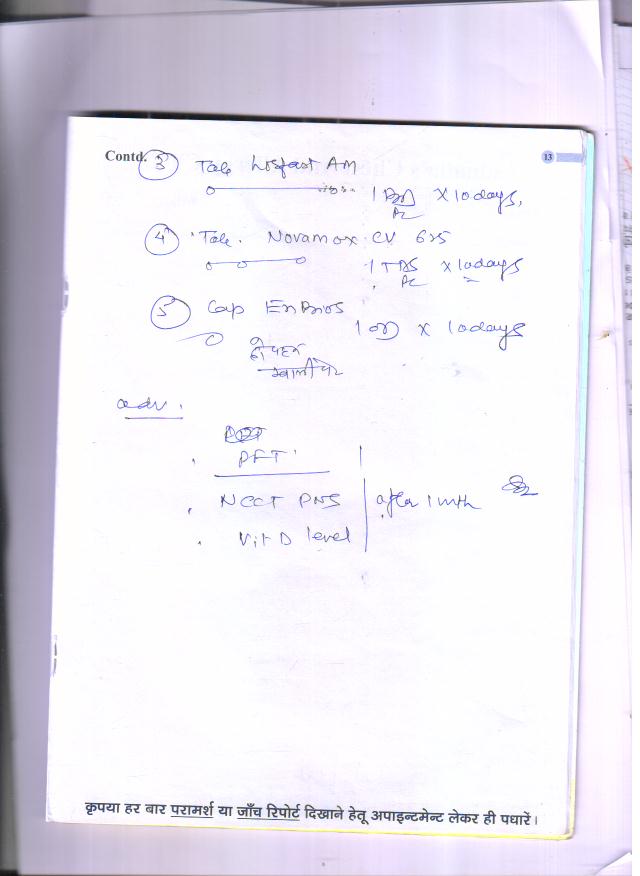 Contd. 3 Tab Losfast AM 13
1 BD x 10 days,
PC
4 Tab. Novamox CV 625
1 TDS x 10 days
PC
5 Cap
1 OD x 10 days
दोपहर
खाली पेट
adv.
PFT
NCCT PNS after 1 mth
Vit D level
कृपया हर बार परामर्श या जाँच रिपोर्ट दिखाने हेतू अपाइन्टमेन्ट लेकर ही पधारें।